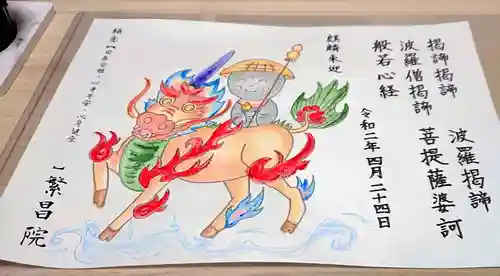 揭諦揭諦
波羅僧揭諦
般若心経
波羅揭諦
菩提薩婆訶
麒麟来迎
令和二年四月二十四日
繁昌院